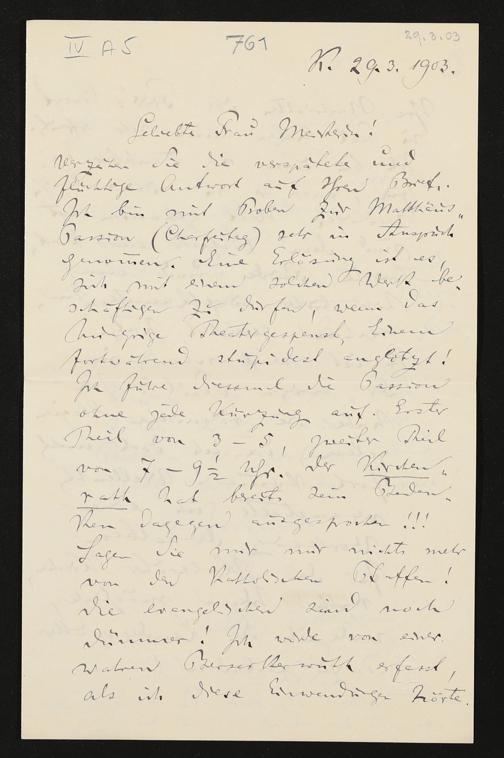 IV A 5 761 29.3.03
K. 29.3.1903.
Geliebte Frau Meisterin!
verzeihen Sie die verspätete und
flüchtige Antwort auf Ihren Brief.
Ich bin mit Proben zur Matthäus-
Passion (Charfreitag) sehr in Anspruch
genommen. Eine Erlösung ist es,
sich mit einem solchen Werk be-
schäftigen zu dürfen, wenn das
hungrige Theatergespenst Einem
fortwährend stupidest anglotzt!
Ich führe diesmal die Passion
ohne jede Kürzung auf. Erster
Theil von 3 – 5, zweiter Theil
von 7 – 9½ Uhr! Der Kirchen-
rath hat bereits sein Beden-
ken dagegen ausgesprochen!!!
Sagen Sie mir nur nichts mehr
von den Katholischen Pfaffen!
die evangelischen sind noch
dümmer! Ich wurde von einer
wahren Berserkerwuth erfasst,
als ich diese Einwendungen hörte.